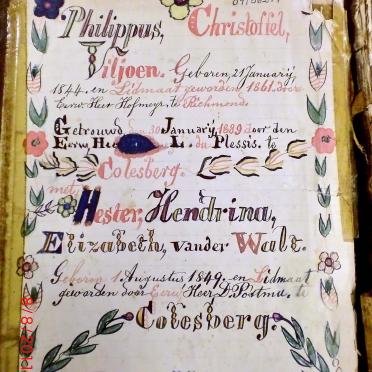 Philippus, Christoffel,
Viljoen. Geboren, 21 Januarij,
1844. en Lidmaat geworden 1861. door
Eerw. Heer Hofmeyr, te Richmond.
Getrouwd 30 Januarij 1889 door den
Eerw He L. du Plessis. te
Colesberg.
met,
Hester, Hendrina,
Elizabeth, vander Walt.
Geboren 1 Augustus 1849. en Lidmaat
geworden door Eerw Heer D. Postma. te
Colesberg.